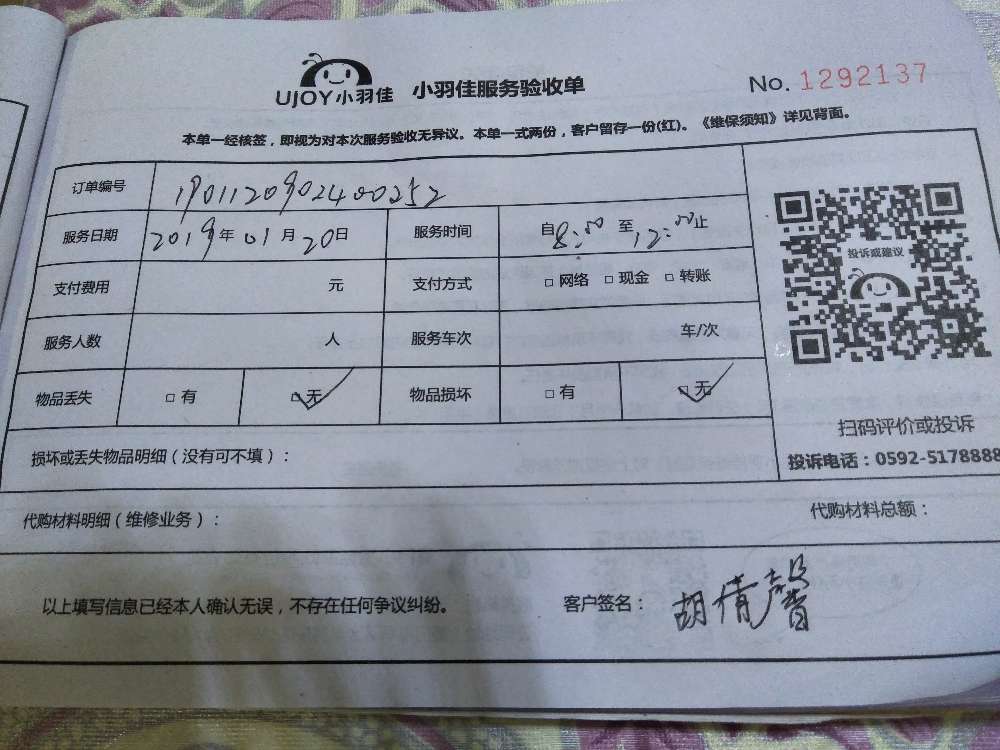 UJOY小羽佳 小羽佳服务验收单 No. 1292137
本单一经核签，即视为对本次服务验收无异议。本单一式两份，客户留存一份(红)。《维保须知》详见背面。
订单编号 190112090240025​2
服务日期 2019年01月20日 服务时间 自8:00至12:00止
投诉或建议
支付费用 元 支付方式 □网络 □现金 □转账
服务人数 人 服务车次 车/次
物品丢失 □有 □无 物品损坏 □有 □无
扫码评价或投诉
损坏或丢失物品明细（没有可不填）：
投诉电话：0592-5178888
代购材料明细（维修业务）： 代购材料总额：
以上填写信息已经本人确认无误，不存在任何争议纠纷。 客户签名：胡倩馨